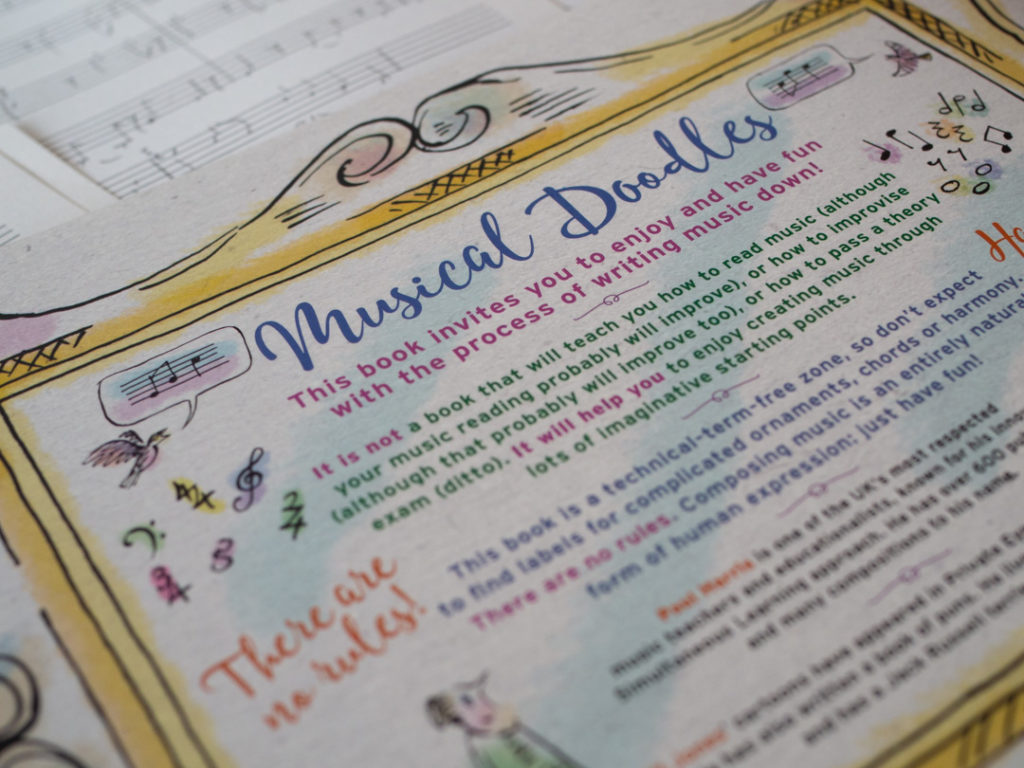 Musical Doodles
This book invites you to enjoy and have fun
with the process of writing music down!
It is not a book that will teach you how to read music (although
your music reading probably will improve), or how to improvise
(although that probably will improve too), or how to pass a theory
exam (ditto). It will help you to enjoy creating music through
lots of imaginative starting points.
This book is a technical-term-free zone, so don't expect
to find labels for complicated ornaments, chords or harmony.
There are no rules. Composing music is an entirely natural
form of human expression: just have fun!
There are
no rules!
Paul Harris is one of the UK's most respected
music teachers and educationalists, known for his
Simultaneous Learning approach. He has over 600
and many compositions to his name.
cartoons have appeared in Private
a book of puns. He
and two a Jack Russell
2
4
3
4
3
2
4